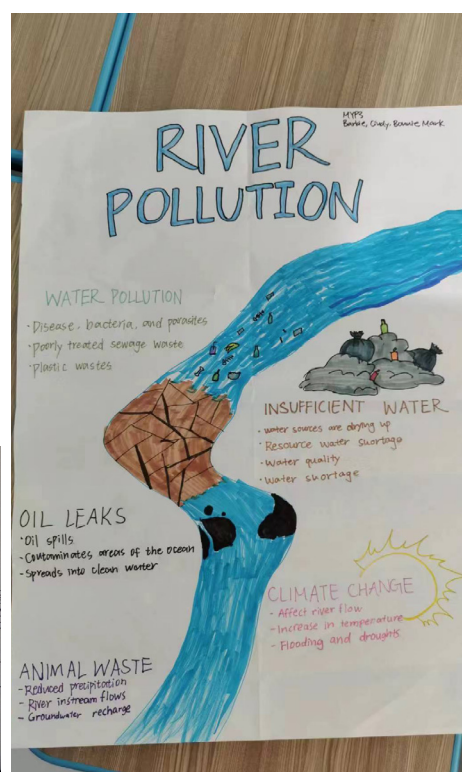 MYP3
Barbie, Cindy, Bonnie, Mark
RIVER
POLLUTION
WATER POLLUTION
· Disease, bacteria, and parasites
· Poorly treated sewage waste
· Plastic wastes
INSUFFICIENT WATER
· water sources are drying up
· Resource water shortage
· Water quality
· Water shortage
OIL LEAKS
· Oil spills
- Contaminates areas of the ocean
- Spreads into clean water
CLIMATE CHANGE
- Affect river flow
- Increase in temperature
- Flooding and droughts
ANIMAL WASTE
- Reduced precipitation
- River instream flows
- Groundwater recharge